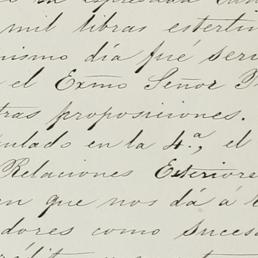 mil libras esterli
mismo día fué ser
el Exmo Señor P
tras proposiciones.
ulado en la 4.ª, el
Relaciones Exteriore
en que nos dá á
dores como suceso